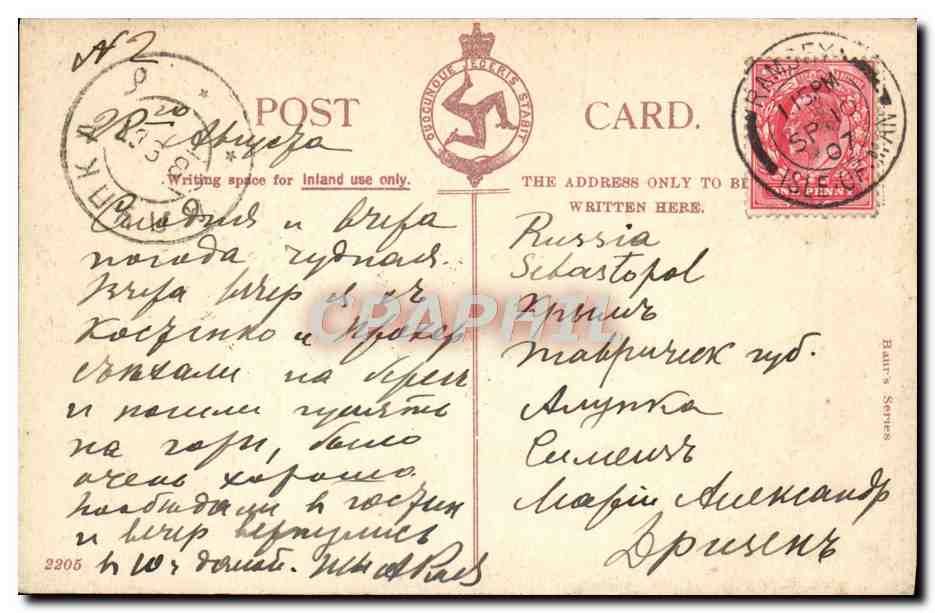 N 2
28/20 Августа
POST CARD.
QUOCUNQUE JECERIS STABIT
Writing space for Inland use only.
THE ADDRESS ONLY TO BE
WRITTEN HERE.
RAMSEY
SP 1
07
ISLE OF MAN
PENNY
и вчера
погода чудная.
Вчера вечер я съ
Костенко и
съѣхали на берег
и пошли гулять
на гору, было
очень хорошо.
Пообѣдали в гостин
и вечер вернулись
в 10 ч домой.
Russia
Sebastopol
Крымъ
Таврическ губ.
Алупка
Симеизъ
Маріи Александр
Дризенъ
2205
Baur's Series
CPAPHIL